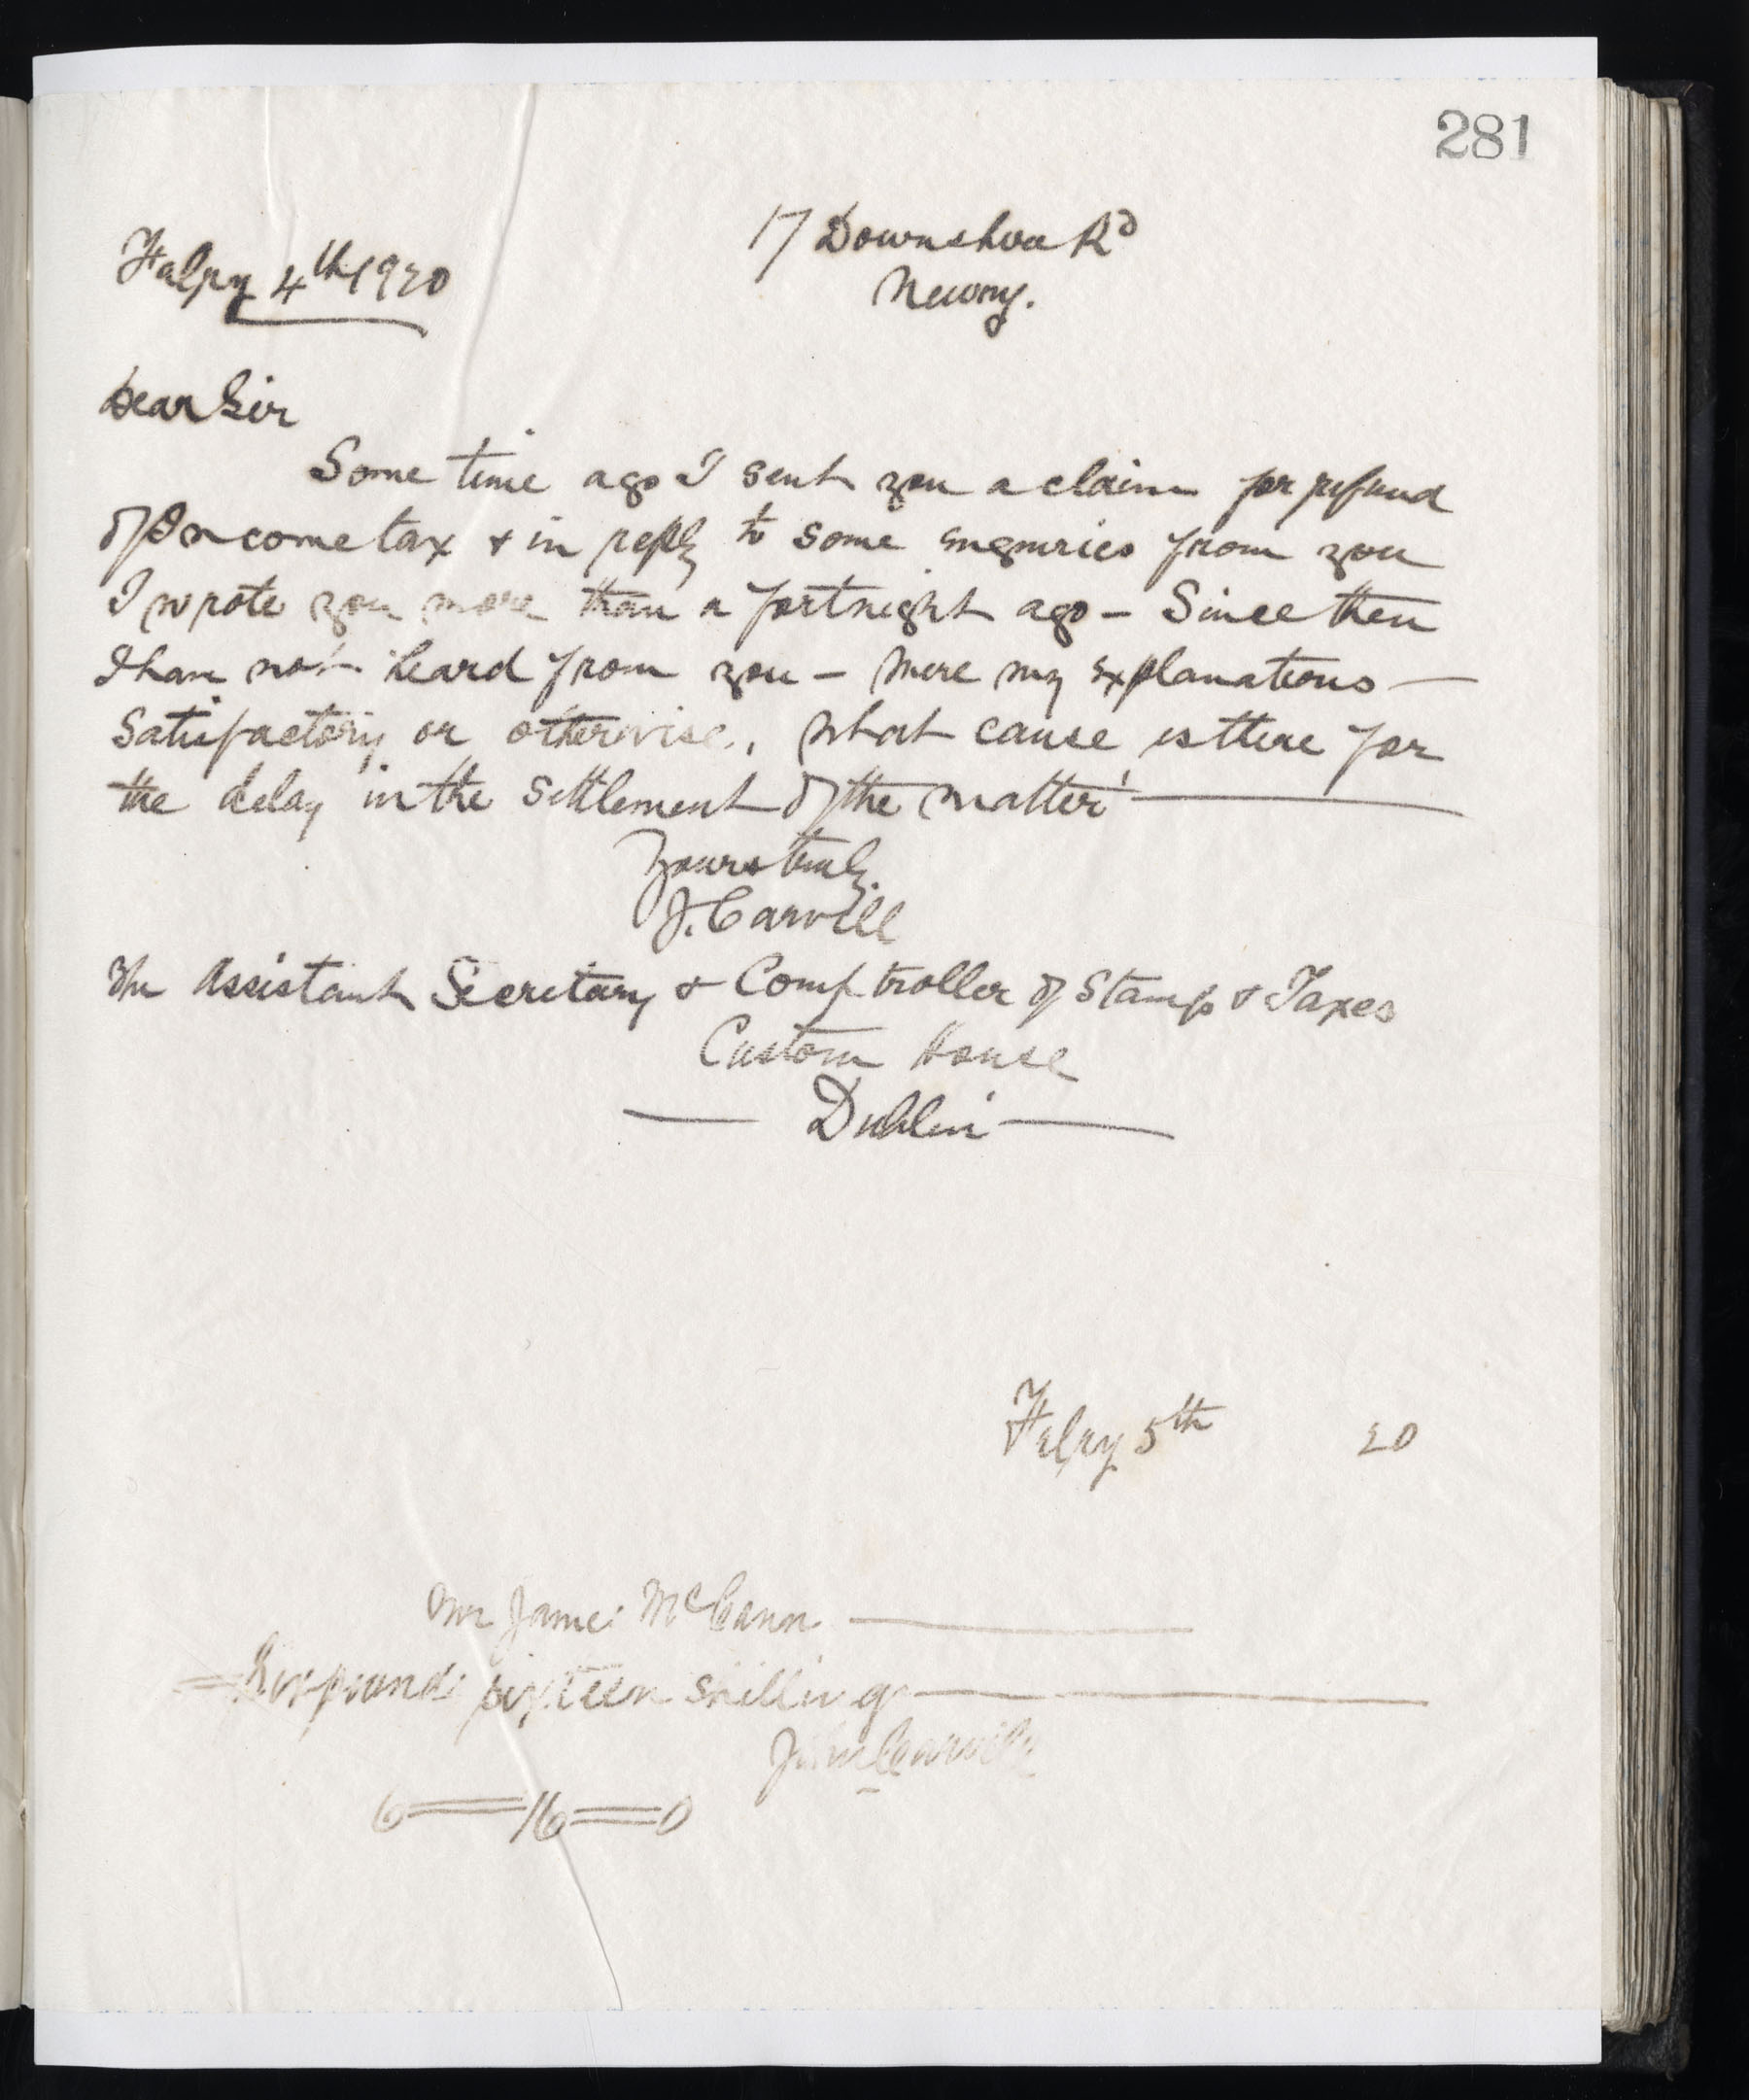 281
17 Downshire Rd
Febry 4th 1920
Newry.
Dear Sir
Some time ago I sent you a claim for refund
of Income tax & in reply to some enquiries from you
I wrote you more than a fortnight ago - Since then
I have not heard from you - Were my explanations -
Satisfactory or otherwise, what cause is there for
the delay in the settlement of the matter
Yours truly.
J. Carvill
The Assistant Secretary & Comptroller of Stamps & Taxes
Custom House
Dublin
Febry 5th 20
Mr James McCann
Six pounds sixteen shillings
John Carvill
6=16=0